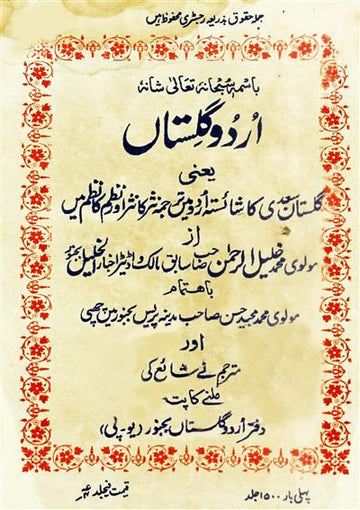 جملہ حقوق بذریعہ رجسٹری محفوظ ہیں
باسمہٖ سُبحانہٗ تعالیٰ شانہٗ
اُردو گلستاں
یعنی
گلستان سعدی کا شائستہ اُردو میں ترجمہ نثر کا نثر اور نظم کا نظم میں
از
مولوی محمد خلیل الرحمٰن صاحب سابق مالک و اڈیٹر اخبار الخلیل بجنور
باہتمام
مولوی محمد مجید حسن صاحب مدینہ پریس بجنور میں چھپی
اور
مترجم نے شائع کی
ملنے کا پتہ
دفتر اُردو گلستاں بجنور (یو-پی)
پہلی بار ۱۵۰۰ جلد
قیمت فیجلد